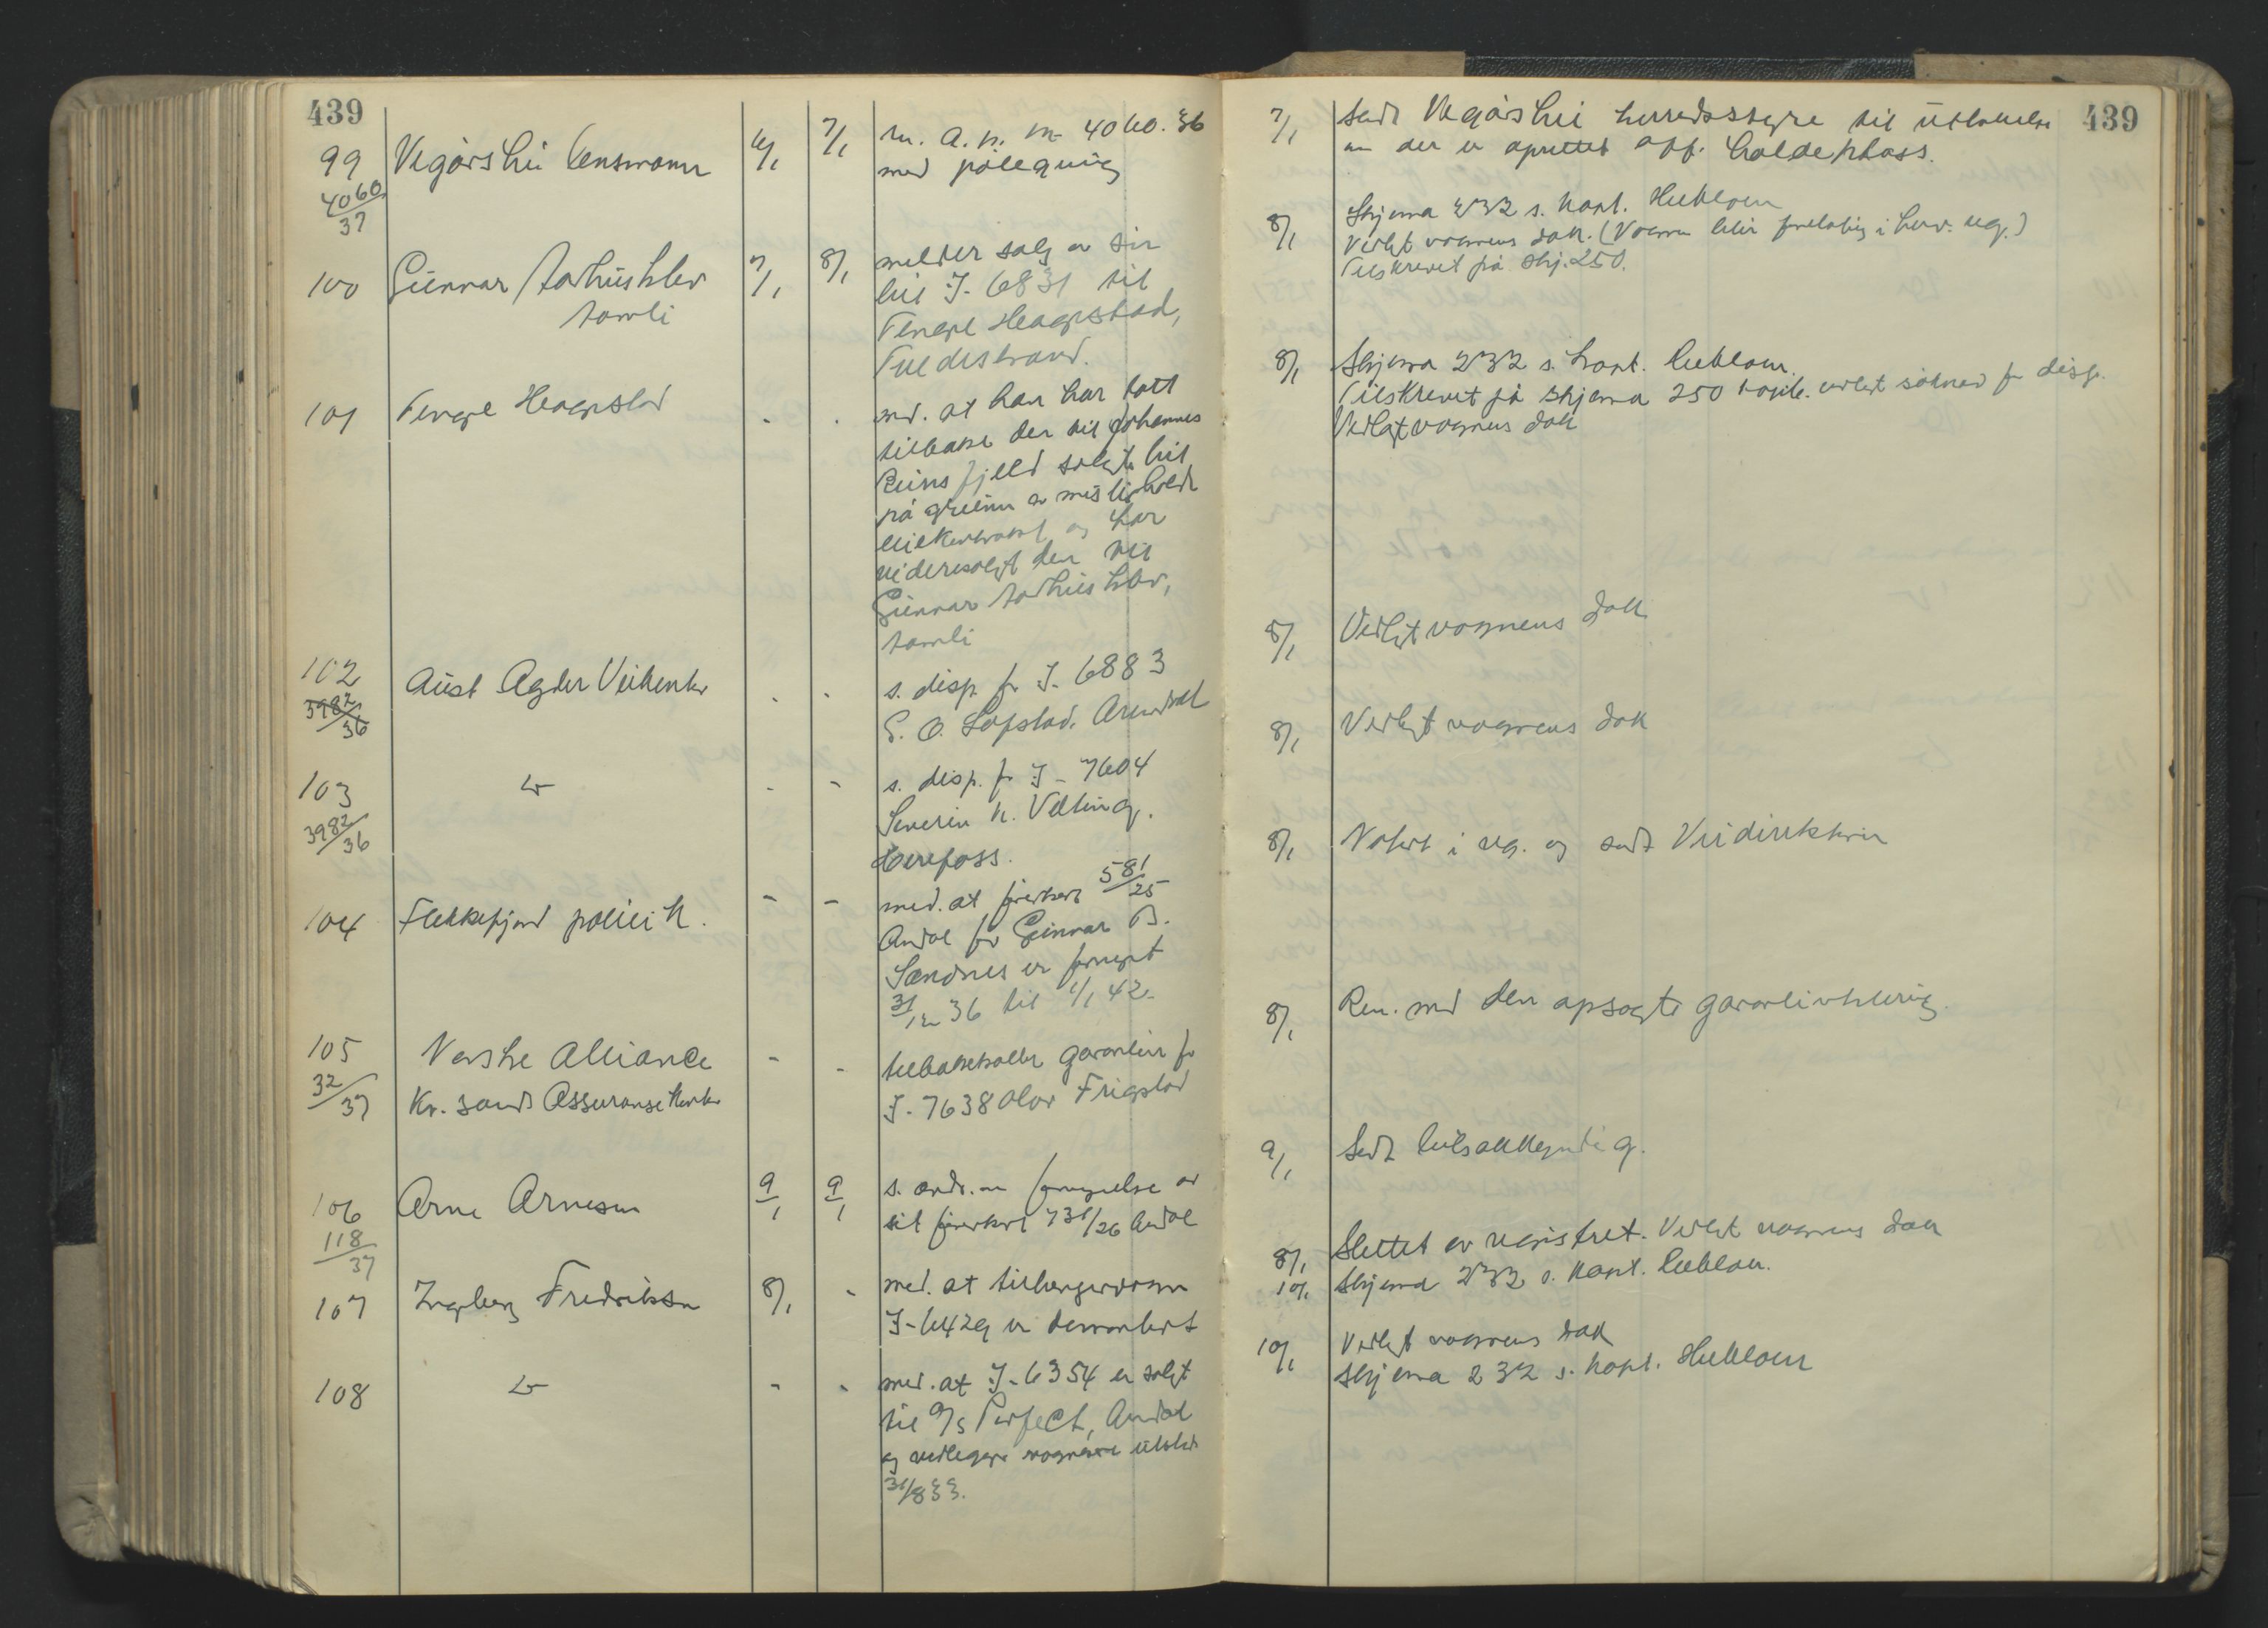 439
99 Vegårshei lensmann 6/1 7/1 m. 4060.36
4060/37 med påtegning
100 Gunnar 7/1 8/1 melder salg av sin
Tovdli bil I-6831 til
Tengel Heagestad,
Tvedestrand.
101 Tengel Heagestad - - med. at han har tatt
tilbake den til Johannes
Reinsfjell solgte bil
på grunn av misligholdt
og har
videresolgt den til
Gunnar
102 Aust Agder Veikontor - - s. disp. for I-6883
3982/36 Arendal
103 - - s. disp. for I-7604
3982/36 Severin K.
Herefoss.
104 Flekkefjord politik. - - med. at førerkort 581/25
Arndal for Gunnar B.
Sandnes er fornyet
31/12 36 til 1/1 42.
105 Norske Alliance - - tilbakekaller garantien for
32/37 Kr. sands Assuransekontor I-7638 Olav Frigstad
106 Arne Arnesen 9/1 9/1 s. ands. om fornyelse av
118/37 sit førerkort 731/26 Arndal
107 Ingeborg Fredriksen 8/1 - med. at tilhengervogn
I-6429 er demontert
108 - - med. at I-6354 er solgt
til A/S Perfect, Arndal
og vedlegger vognkort utstedt
31/8 33.
439
7/1 Sendt Vegårshei herredsstyre til uttalelse
om der er oprettet off. holdeplass.
8/1 Skjema 232 s. kont.
Vedlagt vognens dok. (Vognen blir foreløbig i herv. reg.)
Tilskrevet på skj. 250.
8/1 Skjema 232 s. kont.
Tilskrevet på skjema 250 vedlagt søknad for disp.
Vedlagt vognens dok
8/1 Vedlagt vognens dok
8/1 Vedlagt vognens dok
8/1 Notert i reg. og sendt Veidirektøren
8/1 Ren. med den opsagte garantierklæring.
9/1 Sendt bilsakkyndig.
8/1 Slettet av registret. Vedlagt vognens dok
10/1 Skjema 232 s. kont.
10/1 Vedlagt vognens dok
Skjema 232 s. kont.